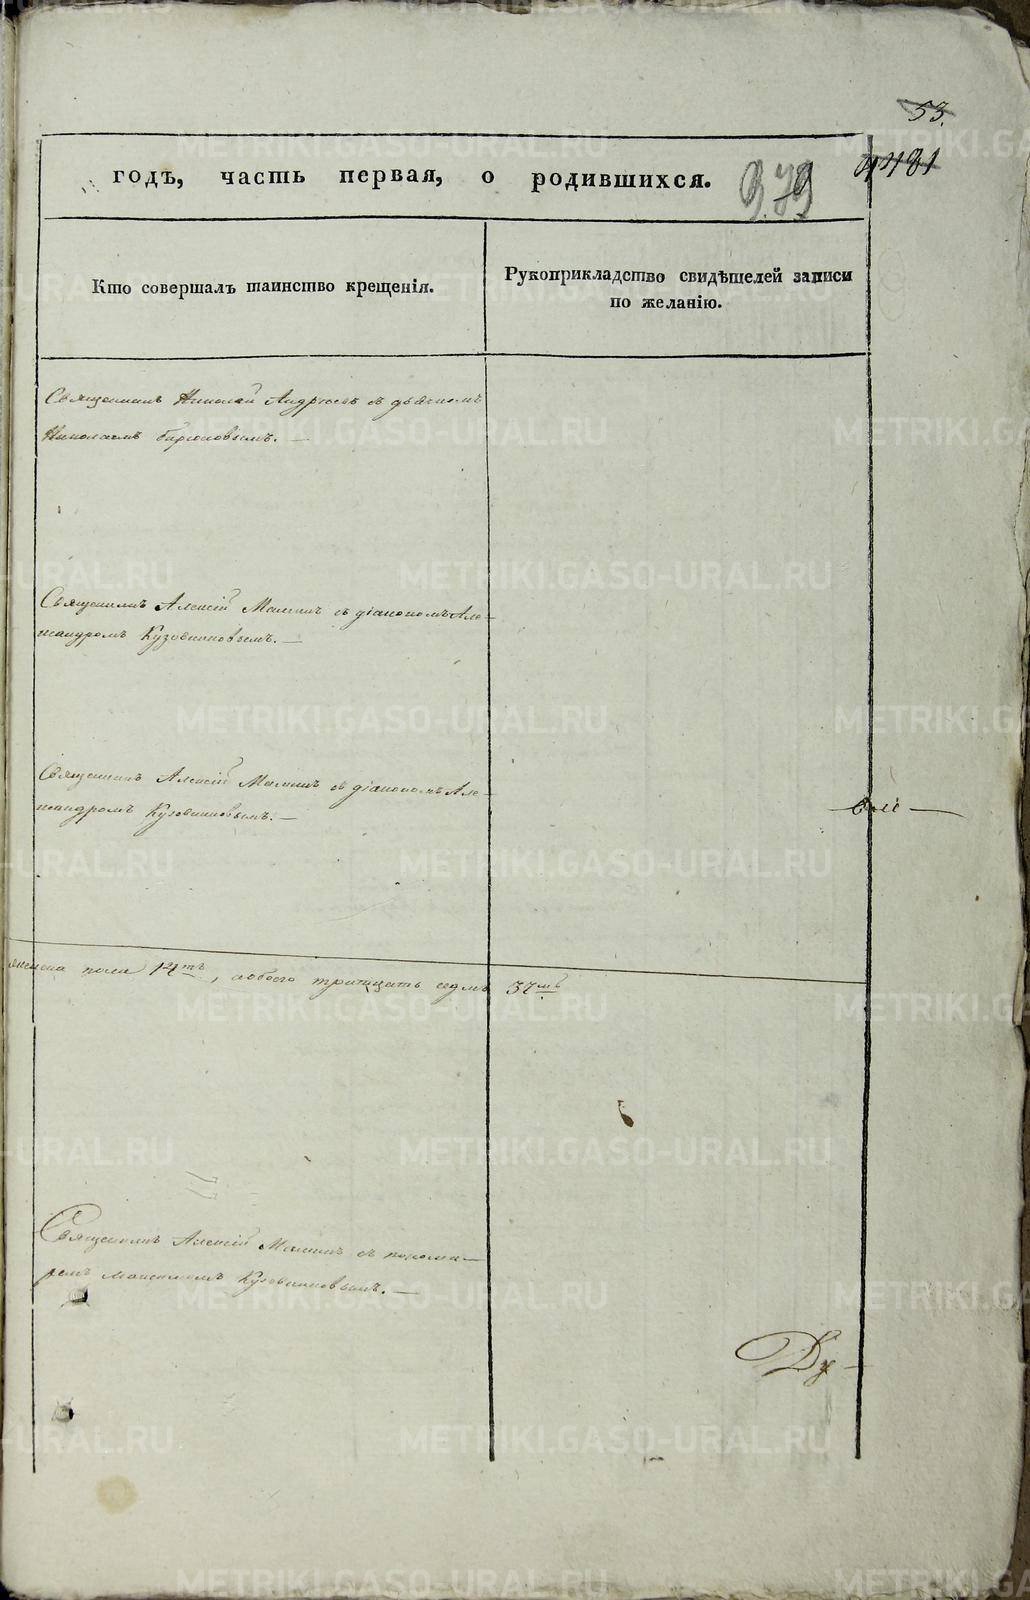 53.
481
годъ, часть первая, о родившихся.
379
Кто совершалъ таинство крещенія.
Рукоприкладство свидѣтелей записи
по желанію.
Священникъ Николай Андреевъ съ дьячкомъ
Николаемъ Бирюковымъ.—
Священникъ Алексій Малинъ съ діакономъ Але-
ксандромъ Кузовниковымъ.—
Священникъ Алексій Малинъ съ діакономъ Але-
ксандромъ Кузовниковымъ.—
женска пола 14ть, обоего тритцать седмь 37мь
Священникъ Алексій Малинъ съ понома-
ремъ Кузовниковымъ.—
METRIKI.GASO-URAL.RU